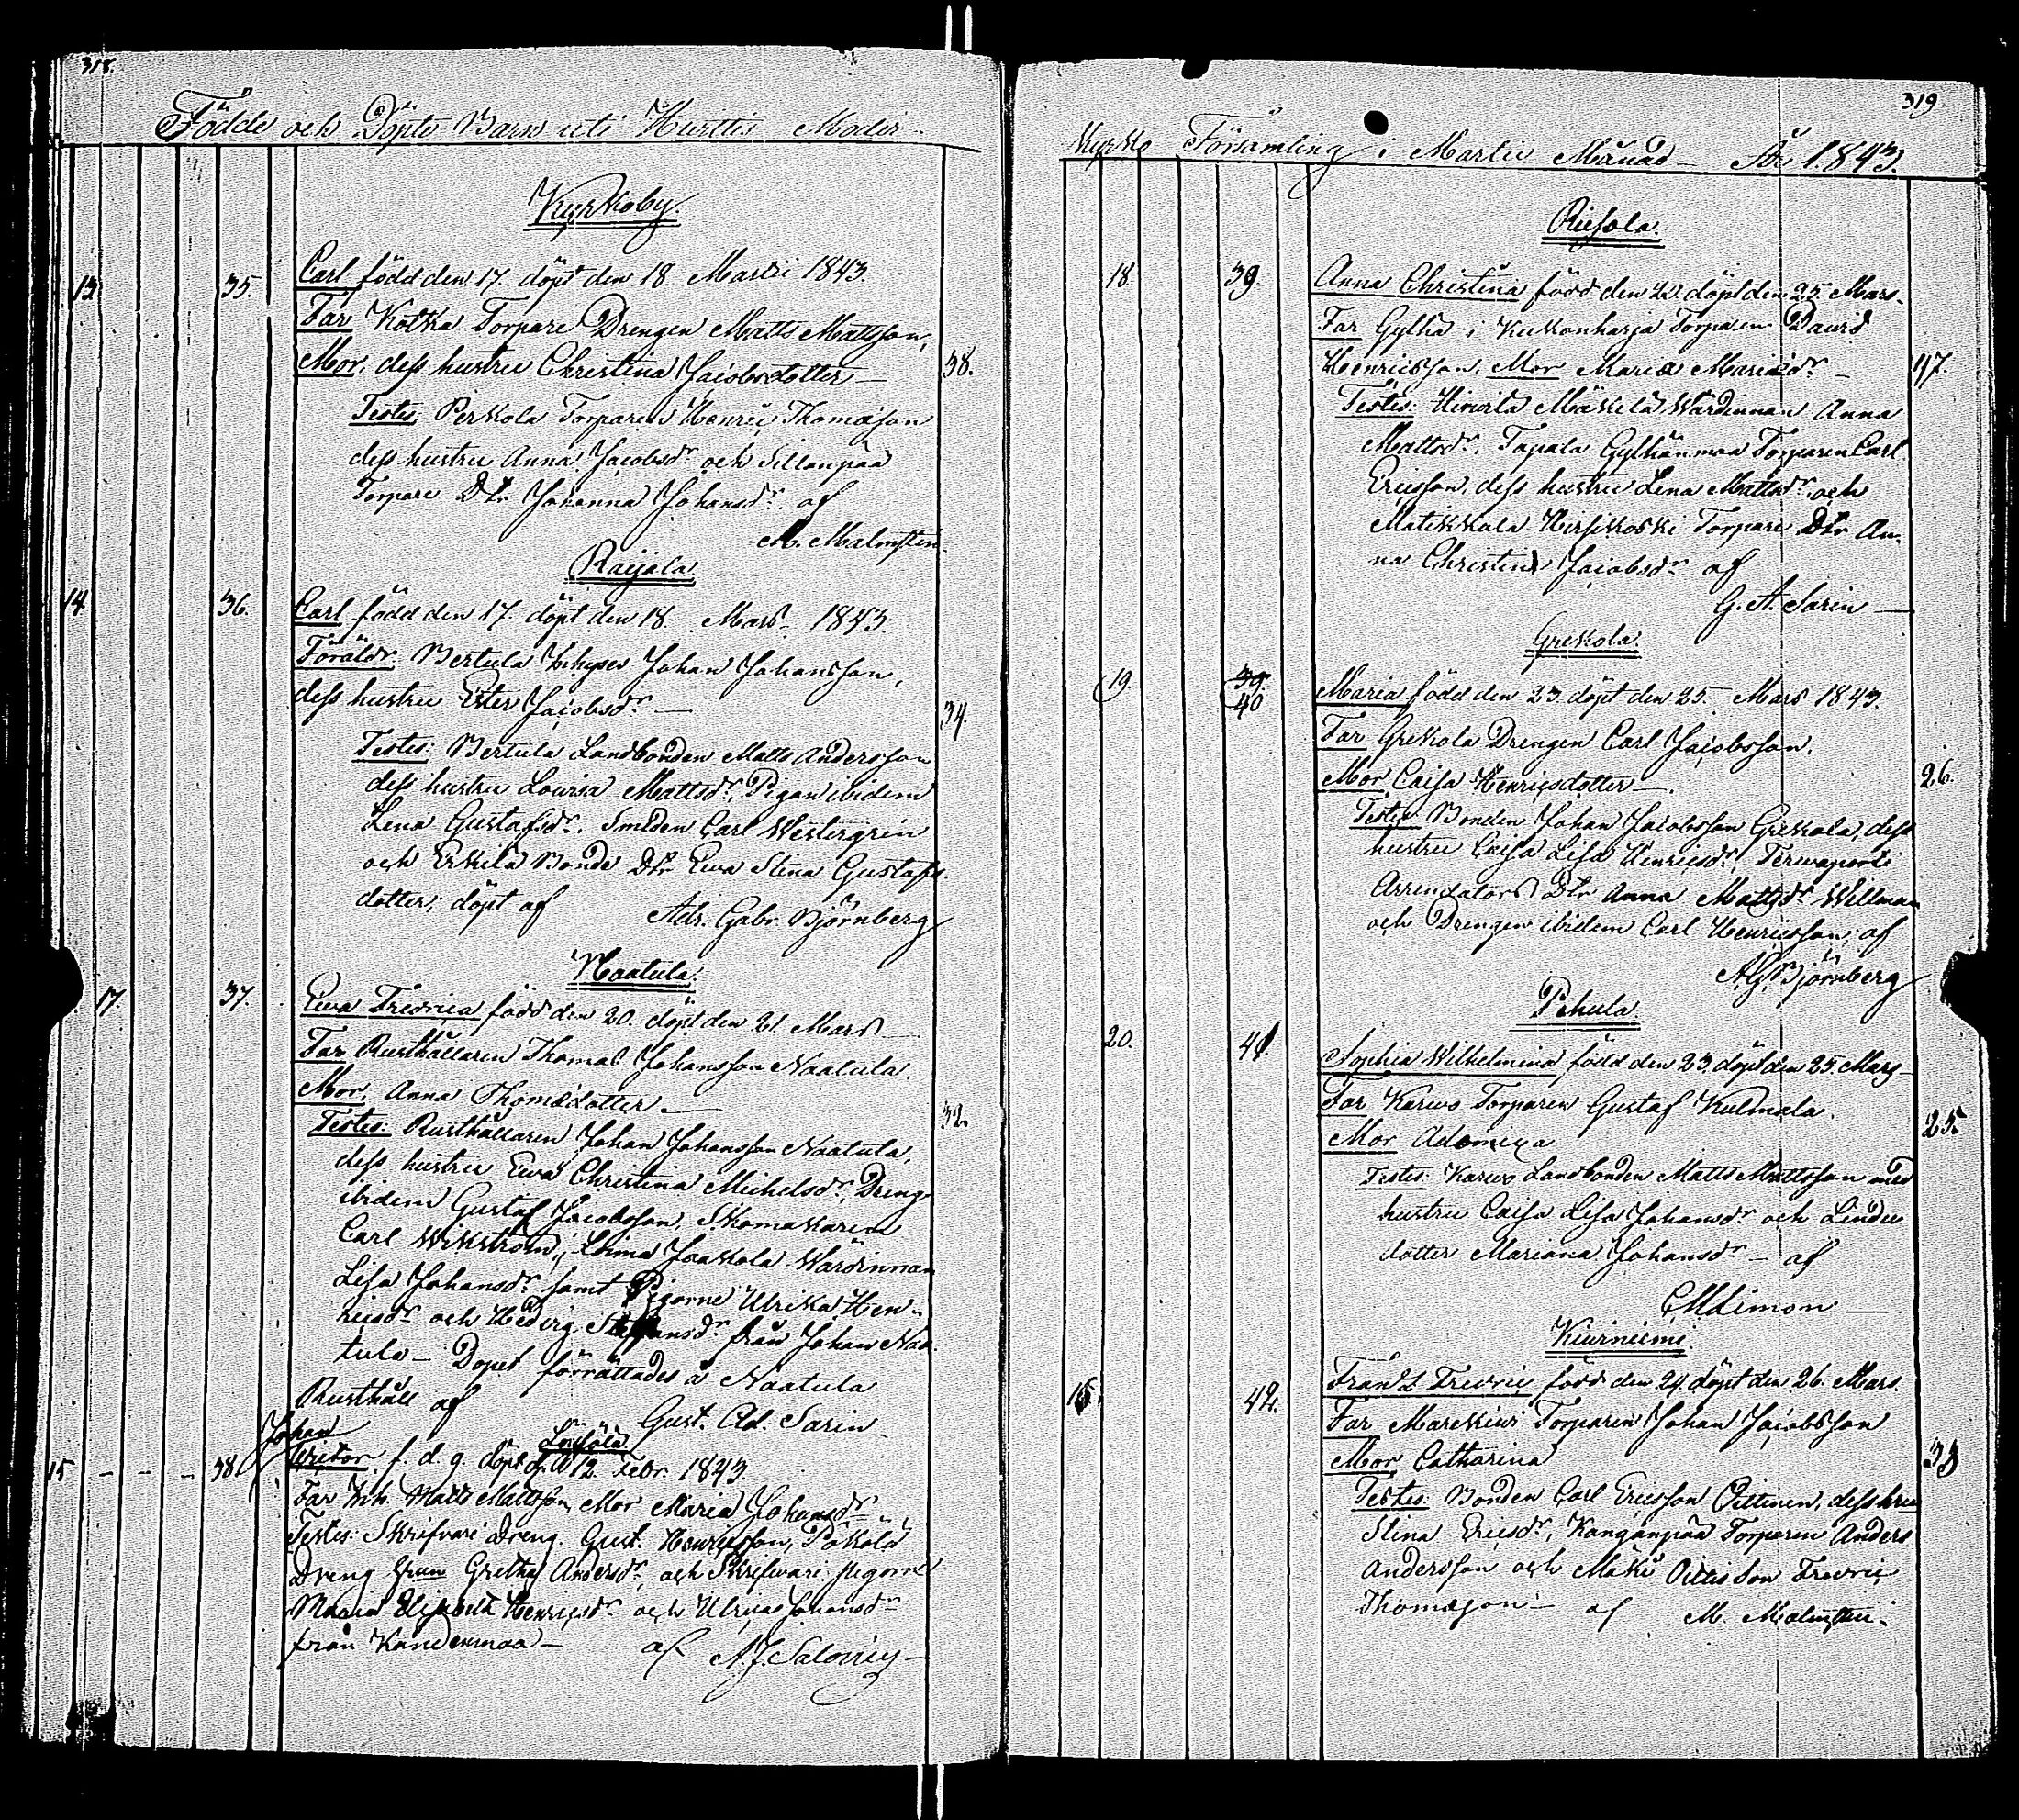 318.
Födde och Döpte Barn uti Huittis Moder-
Kyrkoby.
13. 35. Carl född den 17. döpt den 18. Martii 1843.
Far Kotka Torpare Drengen Matts Mattsson,
Mor, dess hustru Christina Jacobsdotter — 38.
Testes: Perkola Torparen Henric Thomasson
dess hustru Anna Jacobsdr och Sillanpää
Torpare Dtr Johanna Johansdr. af
M. Malmsten.
Raijala
14. 36. Carl född den 17. döpt den 18. Mars 1843.
Föräldr. Bertula Inhyses Johan Johansson,
dess hustru Ester Jacobsdr — 34.
Testes: Bertula Landbonden Matts Andersson
dess hustru Lowisa Mattsdr, Pigan ibidem
Lena Gustafsdr. Smeden Carl Westergrén
och Erkilä Bonde Dtr Ewa Stina Gustafs
dotter; döpt af Adr. Gabr. Björnberg
Naatula.
17. 37. Ewa Fredrica född den 20. döpt den 21. Mars —
Far Rusthållaren Thomas Johansson Naatula.
Mor, Anna Thomædotter — 32.
Testes: Rusthållaren Johan Johansson Naatula,
dess hustru Ewa Christina Michelsdr, Dreng
ibidem Gustaf Jacobsson, Skomakaren
Carl Wikström, Loima Jaakola Wärdinnan
Lisa Johansdr samt Pigorne Ulrika Hen-
ricsdr och Hedvig Staffansdr från Johan Naa-
tula — Dopet förrättades å Naatula
Rusthåll af Gust. Ad. Sarin —
Johan Loisola
15 - - - 38. Wictor f. d. 9. döpt d. 12. Febr. 1843.
Far Inh. Matts Mattsson, Mor Maria Johansdr
Testes: Skrifvari Dreng. Gust. Henricsson,
Dreng Gretha Andersdr, och Skrifwari pigorne
Maria Elisabeth Henricsdr och Ulrica Johansdr
från Kändenmaa — af A. J. Salovius —
319
Kyrko Församling i Martii Månad — År 1843.
Riesola.
18. 39. Anna Christina född den 22. döpt den 25. Mars.
Far Gylhä i Kukonharja Torparen David
Henricsson, Mor Maria Mariædr — 47.
Testes: Hirwilä Mäkelä Wärdinnan Anna
Mattsdr, Tapala Gylhänmaa Torparen Carl
Ericsson, dess hustru Lena Mattsdr, och
Matikkala Hirsikoski Torpare Dtr An-
na Christina Jacobsdr af
G. A. Sarin —
Grekola.
19. 39. 40 Maria född den 23. döpt den 25. Mars 1843.
Far Grekola Drengen Carl Jacobsson,
Mor Caisa Henricsdotter — 26.
Testes: Bonden Johan Jacobsson Grekola, dess
hustru Caisa Lisa Henricsdr,
Arrendators Dtr Anna Mattsdr Willman
och Drengen ibidem Carl Henricsson; af
A. G. Björnberg
Pehula.
20. 41. Sophia Wilhelmina född den 23. döpt den 25. Mars —
Far Karwo Torparen Gustaf Kulmala.
Mor Adamina 25.
Testes: Karwo Landbonden Matts Mattsson med
hustru Caisa Lisa Johansdr och Lindu
dotter Mariana Johansdr — af
C M Limon —
Kiwiniemi.
16. 42. Frans Fredric född den 24. döpt den 26. Mars.
Far Marekiwi Torparen Johan Jacobsson
Mor Catharina 33
Testes: Bonden Carl Ericsson Pittinen, dess hru
Stina Ericsdr, Kanganpää Torparen Anders
Andersson och Mäki Son Fredric
Thomasson — af M. Malmsten.